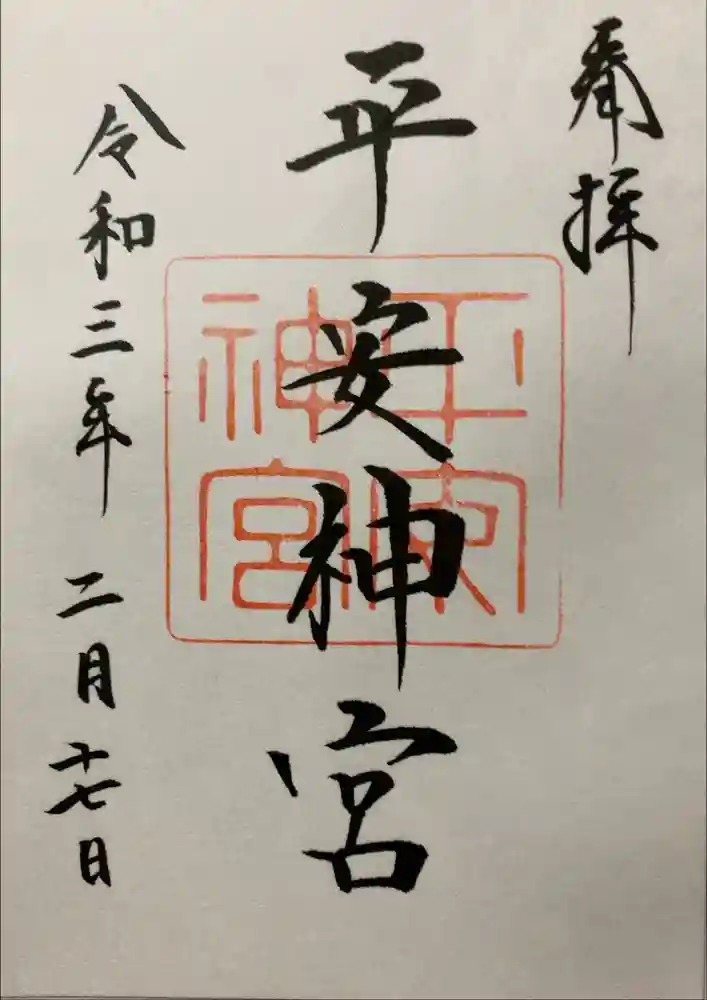 奉拝
平安神宮
平安神宮
令和三年 二月十七日